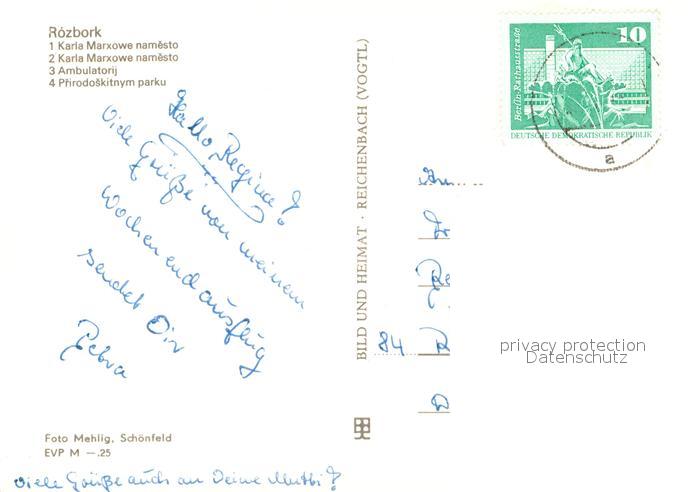 Rózbork
1 Karla Marxowe naměsto
2 Karla Marxowe naměsto
3 Ambulatorij
4 Přirodoškitnym parku
Hallo Regine!
Viele Grüße von meinem
Wochenendausflug
sendet Dir
Petra
Foto Mehlig, Schönfeld
EVP M —.25
Viele Grüße auch an Deine Mutti!
BILD UND HEIMAT · REICHENBACH (VOGTL)
Berlin-Rathausstraße
10
DEUTSCHE DEMOKRATISCHE REPUBLIK
a
84 R
privacy protection
Datenschutz